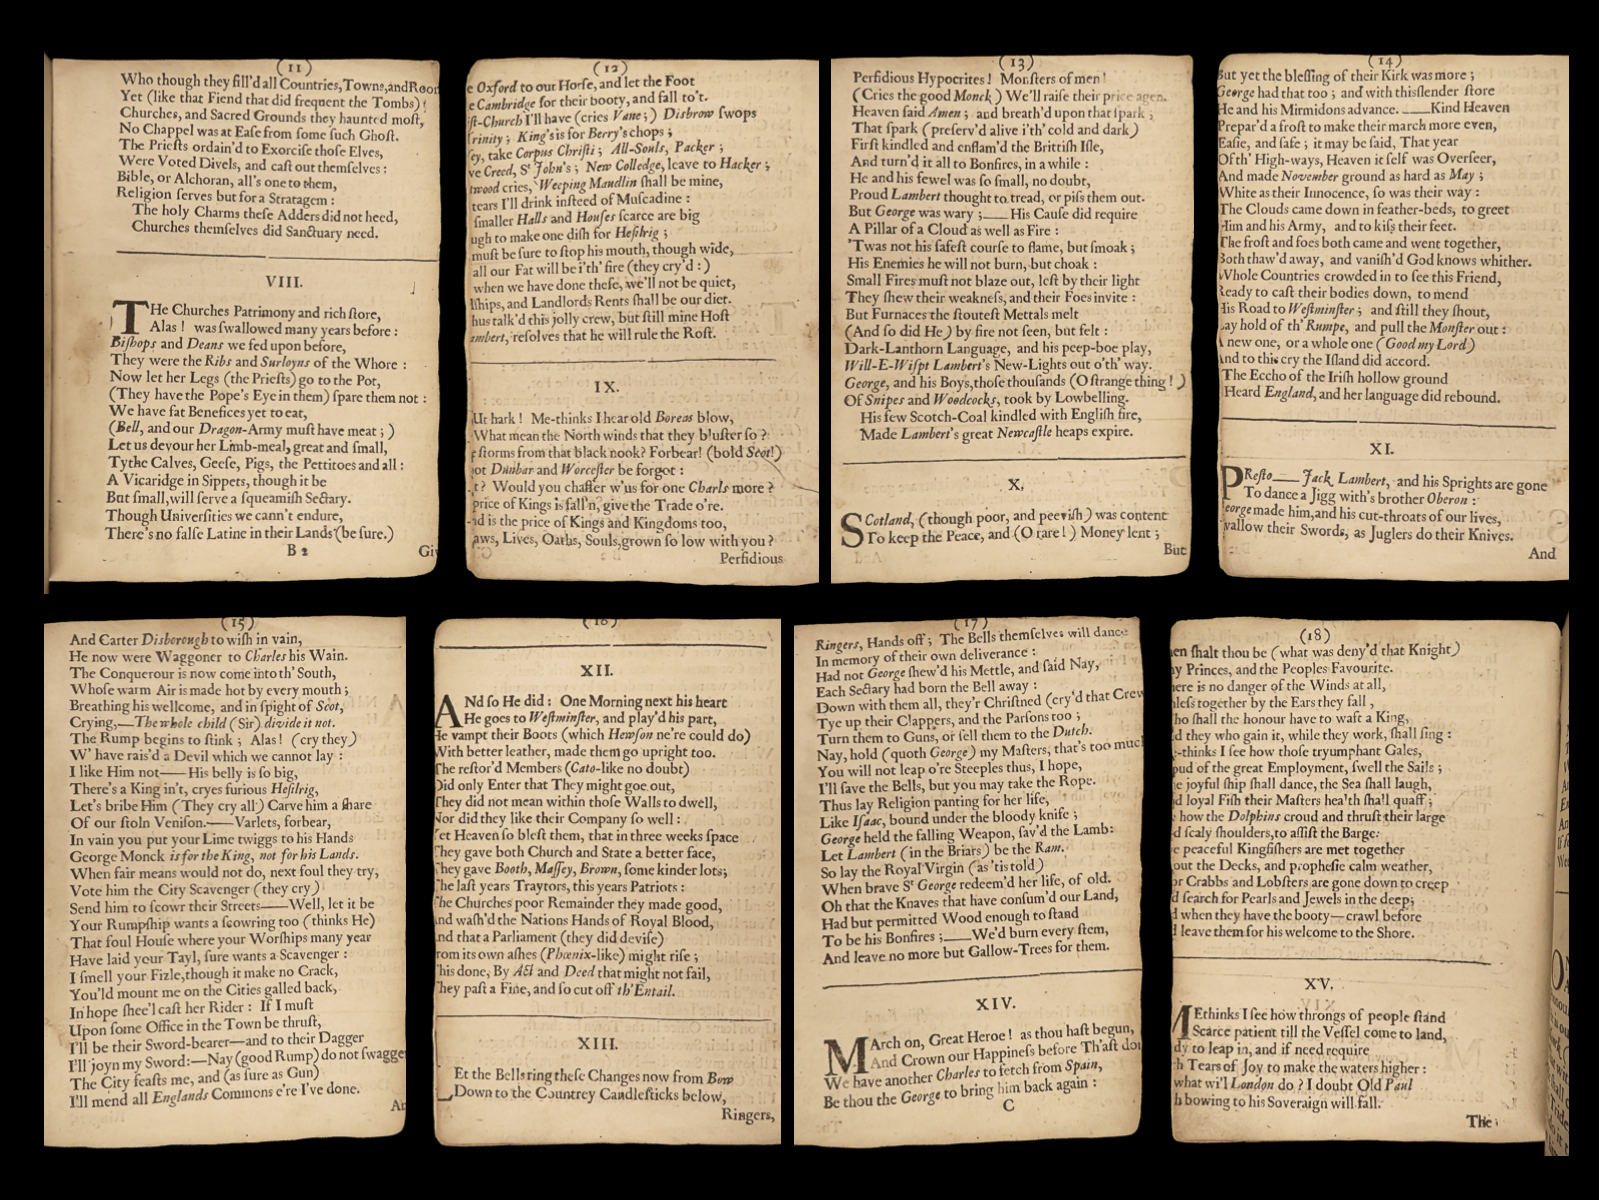 (11)
Who though they fill'd all Countries, Towns, and Roo
Yet (like that Fiend that did frequent the Tombs)
Churches, and Sacred Grounds they haunted most,
No Chappel was at Ease from some such Ghost.
The Priests ordain'd to Exorcise those Elves,
Were Voted Divels, and cast out themselves:
Bible, or Alchoran, all's one to them,
Religion serves but for a Stratagem:
The holy Charms these Adders did not heed,
Churches themselves did Sanctuary need.
VIII.
THe Churches Patrimony and rich store,
Alas! was swallowed many years before:
Bishops and Deans we fed upon before,
They were the Ribs and Surloyns of the Whore:
Now let her Legs (the Priests) go to the Pot,
(They have the Pope's Eye in them) spare them not:
We have fat Benefices yet to eat,
(Bell, and our Dragon-Army must have meat;)
Let us devour her Limb-meal, great and small,
Tythe Calves, Geese, Pigs, the Pettitoes and all:
A Vicaridge in Sippets, though it be
But small, will serve a squeamish Sectary.
Though Universities we cann't endure,
There's no false Latine in their Lands (be sure.)
B 2 Gi
(12)
e Oxford to our Horse, and let the Foot
e Cambridge for their booty, and fall to't.
st-Church I'll have (cries Vane;) Disbrow swops
rinity; King's is for Berry's chops;
ey, take Corpus Christi; All-Souls, Packer;
ve Creed, St John's; New Colledge, leave to Hacker;
wood cries, Weeping Maudlin shall be mine,
tears I'll drink insteed of Muscadine:
smaller Halls and Houses scarce are big
ugh to make one dish for Hesilrig;
must be sure to stop his mouth, though wide,
all our Fat will be i'th' fire (they cry'd:)
when we have done these, we'll not be quiet,
lships, and Landlords Rents shall be our diet.
hus talk'd this jolly crew, but still mine Host
ambert, resolves that he will rule the Rost.
IX.
Ut hark! Me-thinks I hear old Boreas blow,
What mean the North winds that they bluster so?
e storms from that black nook? Forbear! (bold Scot!)
ot Dunbar and Worcester be forgot:
t? Would you chaffer w'us for one Charls more?
price of Kings is fall'n, give the Trade o're.
nd is the price of Kings and Kingdoms too,
aws, Lives, Oaths, Souls, grown so low with you?
Perfidious
(13)
Perfidious Hypocrites! Monsters of men!
(Cries the good Monck) We'll raise their price agen.
Heaven said Amen; and breath'd upon that spark;
That spark (preserv'd alive i'th' cold and dark)
First kindled and enflam'd the Brittish Isle,
And turn'd it all to Bonfires, in a while:
He and his fewel was so small, no doubt,
Proud Lambert thought to tread, or piss them out.
But George was wary;—— His Cause did require
A Pillar of a Cloud as well as Fire:
'Twas not his safest course to flame, but smoak;
His Enemies he will not burn, but choak:
Small Fires must not blaze out, lest by their light
They shew their weakness, and their Foes invite:
But Furnaces the stoutest Mettals melt
(And so did He) by fire not seen, but felt:
Dark-Lanthorn Language, and his peep-boe play,
Will-E-Wispt Lambert's New-Lights out o'th' way.
George, and his Boys, those thousands (O strange thing!)
Of Snipes and Woodcocks, took by Lowbelling.
His few Scotch-Coal kindled with English fire,
Made Lambert's great Newcastle heaps expire.
X.
SCotland, (though poor, and peevish) was content
To keep the Peace, and (O rare!) Money lent;
But
(14)
But yet the blessing of their Kirk was more;
George had that too; and with this slender store
He and his Mirmidons advance. ——Kind Heaven
Prepar'd a frost to make their march more even,
Easie, and safe; it may be said, That year
Of th' High-ways, Heaven it self was Overseer,
And made November ground as hard as May;
White as their Innocence, so was their way:
The Clouds came down in feather-beds, to greet
Him and his Army, and to kiss their feet.
The frost and foes both came and went together,
Both thaw'd away, and vanish'd God knows whither.
Whole Countries crowded in to see this Friend,
Ready to cast their bodies down, to mend
His Road to Westminster; and still they shout,
Lay hold of th' Rumpe, and pull the Monster out:
A new one, or a whole one (Good my Lord)
And to this cry the Island did accord.
The Eccho of the Irish hollow ground
Heard England, and her language did rebound.
XI.
PResto—— Jack Lambert, and his Sprights are gone
To dance a Jigg with's brother Oberon:
eorge made him, and his cut-throats of our lives,
wallow their Swords, as Juglers do their Knives.
And
(15)
And Carter Disborough to wish in vain,
He now were Waggoner to Charles his Wain.
The Conquerour is now come into th' South,
Whose warm Air is made hot by every mouth;
Breathing his wellcome, and in spight of Scot,
Crying,—The whole child (Sir) divide it not.
The Rump begins to stink; Alas! (cry they)
W' have rais'd a Devil which we cannot lay:
I like Him not—— His belly is so big,
There's a King in't, cryes furious Hesilrig,
Let's bribe Him (They cry all) Carve him a share
Of our stoln Venison.——Varlets, forbear,
In vain you put your Lime twiggs to his Hands
George Monck is for the King, not for his Lands.
When fair means would not do, next foul they try,
Vote him the City Scavenger (they cry)
Send him to scowr their Streets——Well, let it be
Your Rumpship wants a scowring too (thinks He)
That foul House where your Worships many year
Have laid your Tayl, sure wants a Scavenger:
I smell your Fizle, though it make no Crack,
You'ld mount me on the Cities galled back,
In hope shee'l cast her Rider: If I must
Upon some Office in the Town be thrust,
I'll be their Sword-bearer—and to their Dagger
I'll joyn my Sword:—Nay (good Rump) do not swagge
The City feasts me, and (as sure as Gun)
I'll mend all Englands Commons e're I've done.
An
(16)
XII.
ANd so He did: One Morning next his heart
He goes to Westminster, and play'd his part,
He vampt their Boots (which Hewson ne're could do)
With better leather, made them go upright too.
The restor'd Members (Cato-like no doubt)
Did only Enter that They might goe out,
They did not mean within those Walls to dwell,
Nor did they like their Company so well:
Yet Heaven so blest them, that in three weeks space
They gave both Church and State a better face,
They gave Booth, Massey, Brown, some kinder lots;
The last years Traytors, this years Patriots:
The Churches poor Remainder they made good,
And wash'd the Nations Hands of Royal Blood,
And that a Parliament (they did devise)
rom its own ashes (Phœnix-like) might rise;
This done, By Act and Deed that might not fail,
They past a Fine, and so cut off th'Entail.
XIII.
Et the Bells ring these Changes now from Bow
Down to the Countrey Candlesticks below,
Ringers,
(17)
Ringers, Hands off; The Bells themselves will dance
In memory of their own deliverance:
Had not George shew'd his Mettle, and said Nay,
Each Sectary had born the Bell away:
Down with them all, they'r Christned (cry'd that Crew
Tye up their Clappers, and the Parsons too;
Turn them to Guns, or sell them to the Dutch.
Nay, hold (quoth George) my Masters, that's too muc
You will not leap o're Steeples thus, I hope,
I'll save the Bells, but you may take the Rope.
Thus lay Religion panting for her life,
Like Isaac, bound under the bloody knife;
George held the falling Weapon, sav'd the Lamb:
Let Lambert (in the Briars) be the Ram.
So lay the Royal Virgin (as 'tis told)
When brave St George redeem'd her life, of old.
Oh that the Knaves that have consum'd our Land,
Had but permitted Wood enough to stand
To be his Bonfires;——We'd burn every stem,
And leave no more but Gallow-Trees for them.
XIV.
MArch on, Great Heroe! as thou hast begun,
And Crown our Happiness before Th'ast do
We have another Charles to fetch from Spain,
Be thou the George to bring him back again:
C
(18)
en shalt thou be (what was deny'd that Knight)
y Princes, and the Peoples Favourite.
ere is no danger of the Winds at all,
less together by the Ears they fall,
ho shall the honour have to waft a King,
d they who gain it, while they work, shall sing:
e-thinks I see how those tryumphant Gales,
oud of the great Employment, swell the Sails;
e joyful ship shall dance, the Sea shall laugh,
d loyal Fish their Masters health shall quaff;
e how the Dolphins croud and thrust their large
d scaly shoulders, to assist the Barge:
e peaceful Kingfishers are met together
out the Decks, and prophesie calm weather,
or Crabbs and Lobsters are gone down to creep
d search for Pearls and Jewels in the deep;
d when they have the booty—crawl before
d leave them for his welcome to the Shore.
XV.
MEthinks I see how throngs of people stand
Scarce patient till the Vessel come to land,
dy to leap in, and if need require
h Tears of Joy to make the waters higher:
what wi'l London do? I doubt Old Paul
h bowing to his Soveraign will fall.
The